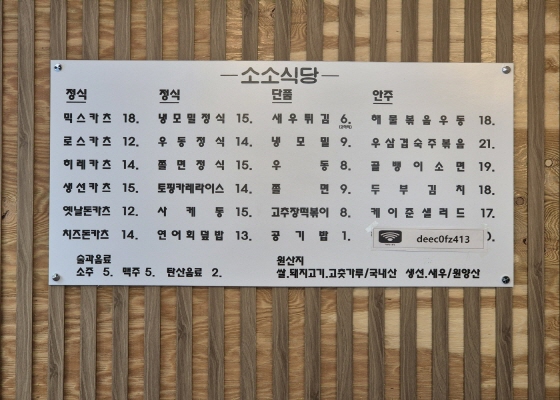 소소식당
정식
믹스카츠 18.
로스카츠 12.
히레카츠 14.
생선카츠 15.
옛날돈카츠 12.
치즈돈카츠 14.
정식
냉모밀정식 15.
우동정식 14.
쫄면정식 15.
토핑카레라이스 14.
사케동 15.
연어회덮밥 13.
단품
새우튀김 6.
냉모밀 9.
우동 8.
쫄면 9.
고추장떡볶이 8.
공기밥 1.
안주
해물볶음우동 18.
우삼겹숙주볶음 21.
골뱅이소면 19.
두부김치 18.
케이준샐러드 17.
deec0fz413
술과음료
소주 5. 맥주 5. 탄산음료 2.
원산지
쌀,돼지고기,고춧가루/국내산 생선,새우/원양산